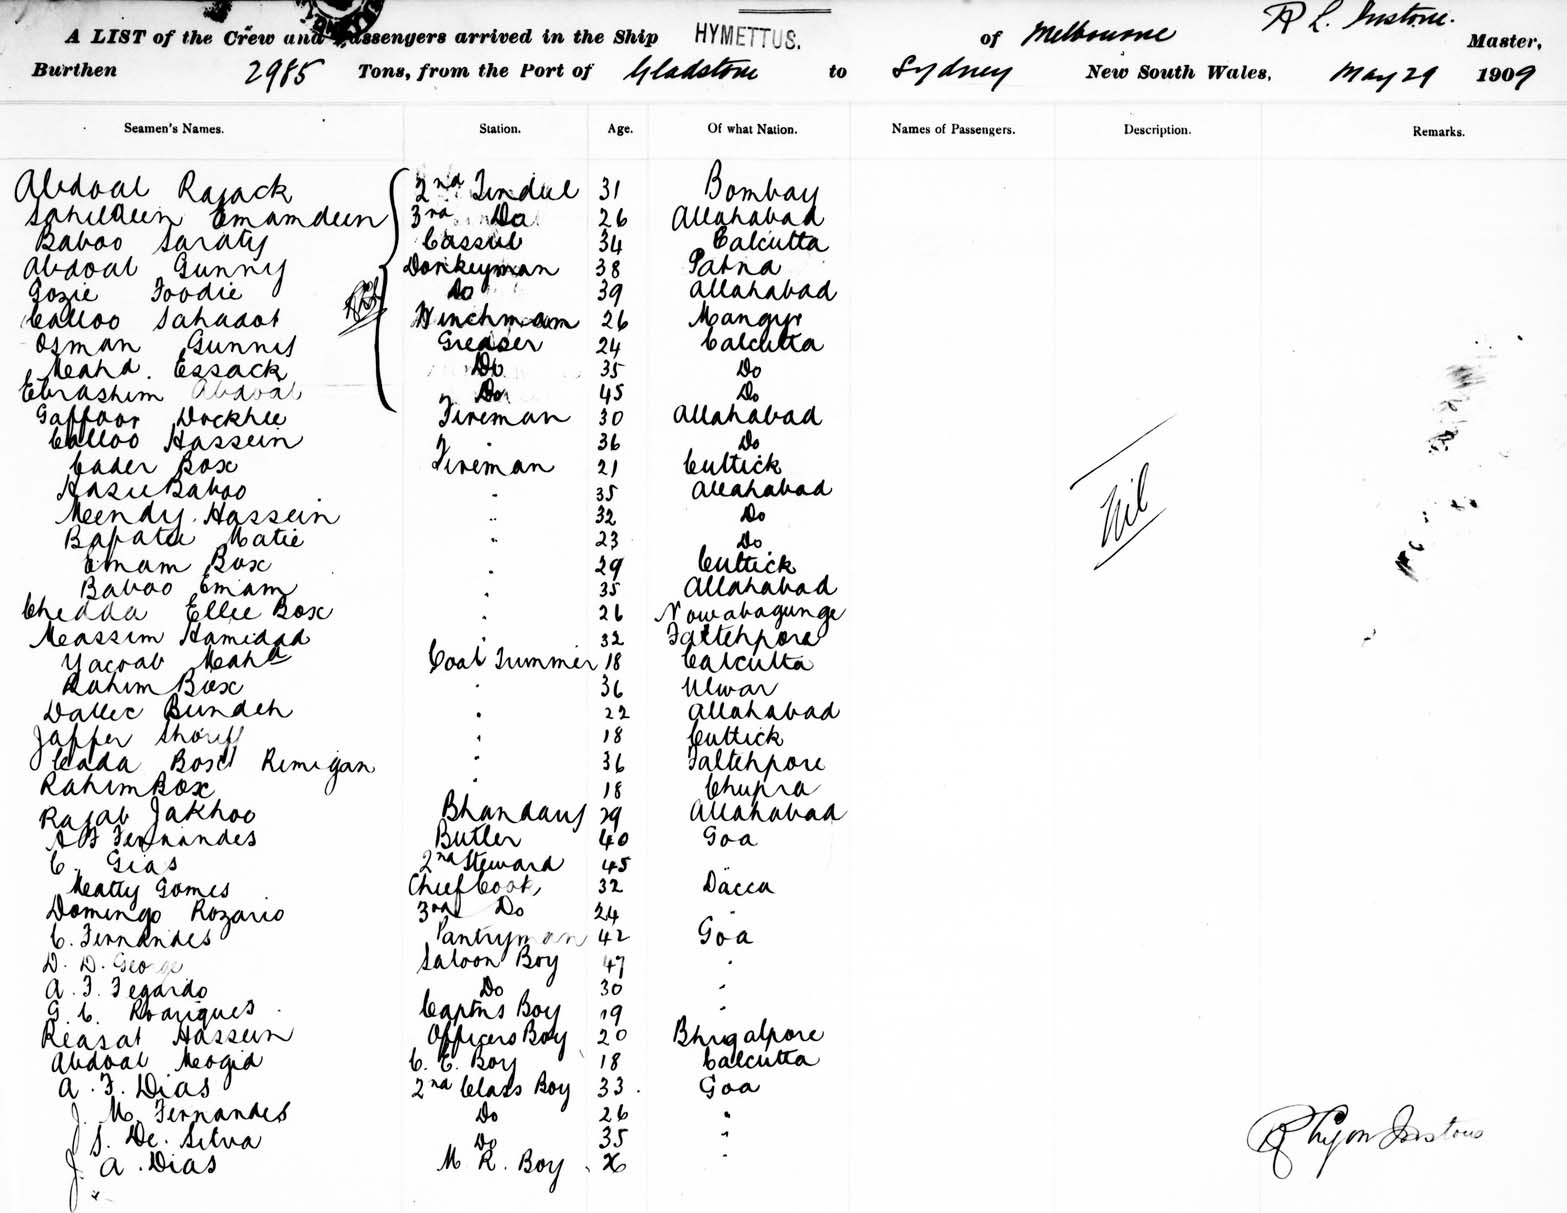 A LIST of the Crew and Passengers arrived in the Ship HYMETTUS. of Melbourne R L. Instone. Master,
Burthen 2985 Tons, from the Port of Gladstone to Sydney New South Wales, May 29 1909
Seamen's Names. Station. Age. Of what Nation. Names of Passengers. Description. Remarks.
Abdoal Rajack 2nd Tindul 31 Bombay
Sahildeen Emamdeen 3rd Do 26 Allahabad
Baboo Saraty Cassub 34 Calcutta
Abdoal Gunny Donkeyman 38 Patna
Gozie Foodie Do 39 Allahabad
Calloo Sahadot Winchmam 26 Mangyr
Osman Gunnis Greaser 24 Calcutta
Mahd. Essack Do 35 Do
Ebrashim Abdoal Do 45 Do
Gaffoor Dockhee Fireman 30 Allahabad
Calloo Hassein " 36 Do
Cader Box Fireman 21 Cuttick
Hasu Baboo " 35 Allahabad
Mendy. Hassein " 32 Do
Bapatu Matie " 23 Do
Emam Box " 29 Cuttick
Baboo Emam " 35 Allahabad
Chedda Ellie Box " 26 Nowabagunge
Massim Hamidad " 32 Fattehpore
Yacoab Mahd Coal Trimmer 18 Calcutta
Rahim Box " 36 Ulwar
Dallec Bundeh " 22 Allahabad
Jaffer Shoriff " 18 Cuttick
Cada Box Rimigan " 36 Fattehpore
Rahim Box " 18 Chupra
Rajab Jakhoo Bhandary 29 Allahabad
A F Fernandes Butler 40 Goa
C. Gias 2nd Steward 45 "
Matty Gomes Chief Cook 32 Dacca
Domingo Rozario 3rd Do 24 "
C. Fernandes Pantryman 42 Goa
D. D. George Saloon Boy 47 "
A. F. Fegardo Do 30 "
G. C. Rodrigues Captns Boy 19 "
Reasat Hassein Officers Boy 20 Bhugalpore
Abdoal Mogid C. E. Boy 18 Calcutta
A. F. Dias 2nd Class Boy 33. Goa
J. M. Fernandes Do 26 "
J. S. De. Silva Do 35 "
J. A. Dias M. R. Boy 26 "
Nil